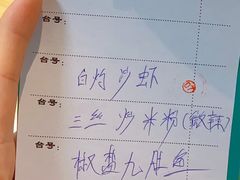 台号:
台号:
白灼沙虾
台号:
三丝炒米粉(微辣)
台号:
椒盐九肚鱼